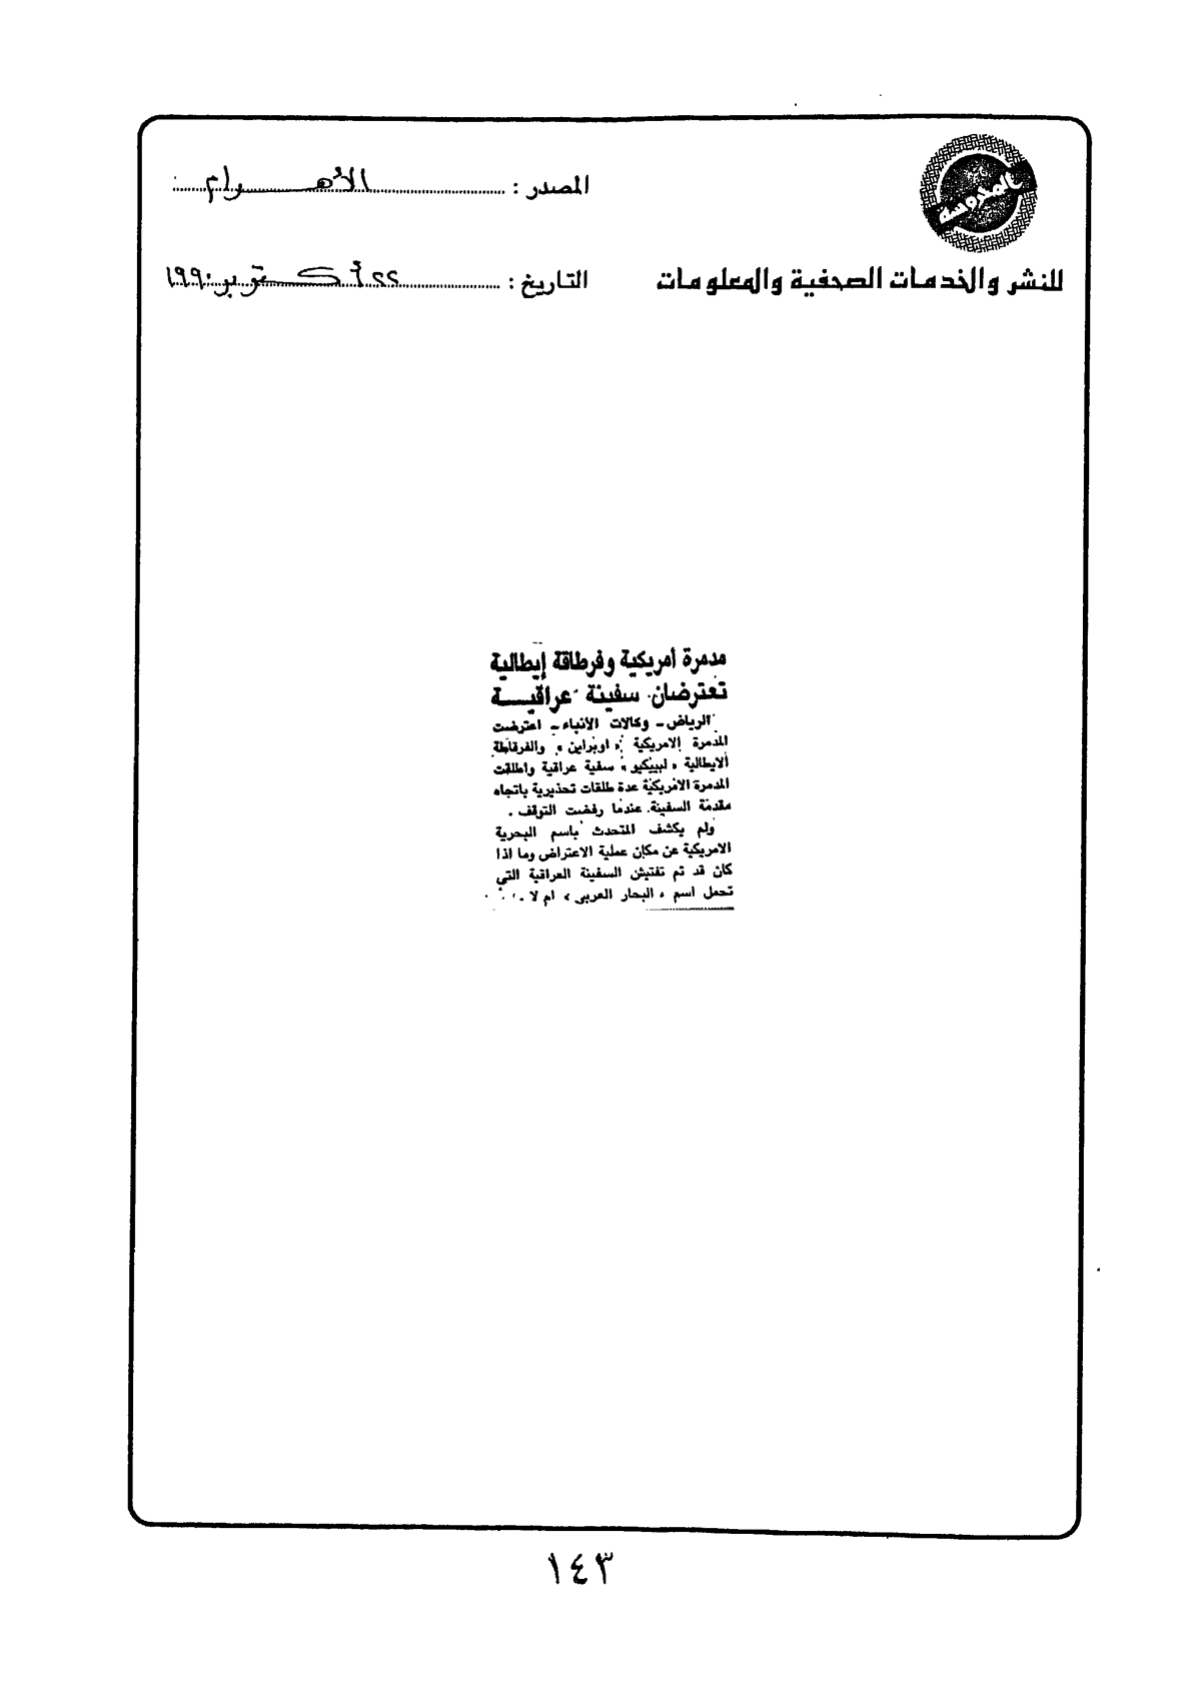 المحروسة
المصدر : الأهرام
للنشر والخدمات الصحفية والمعلومات
التاريخ : ٢٢ أكتوبر ١٩٩٠
مدمرة أمريكية وفرطاقة إيطالية
تعترضان سفينة عراقيـــة
الرياض ـ وكالات الأنباء ـ اعترضت
المدمرة الامريكية « اوبراين » والفرقاطة
الايطالية « ليبيكيو » سفية عراقية واطلقت
المدمرة الامريكية عدة طلقات تحذيرية باتجاه
مقدمة السفينة عندما رفضت التوقف .
ولم يكشف المتحدث باسم البحرية
الامريكية عن مكان عملية الاعتراض وما اذا
كان قد تم تفتيش السفينة العراقية التي
تحمل اسم « البحار العربى » ام لا .
١٤٣